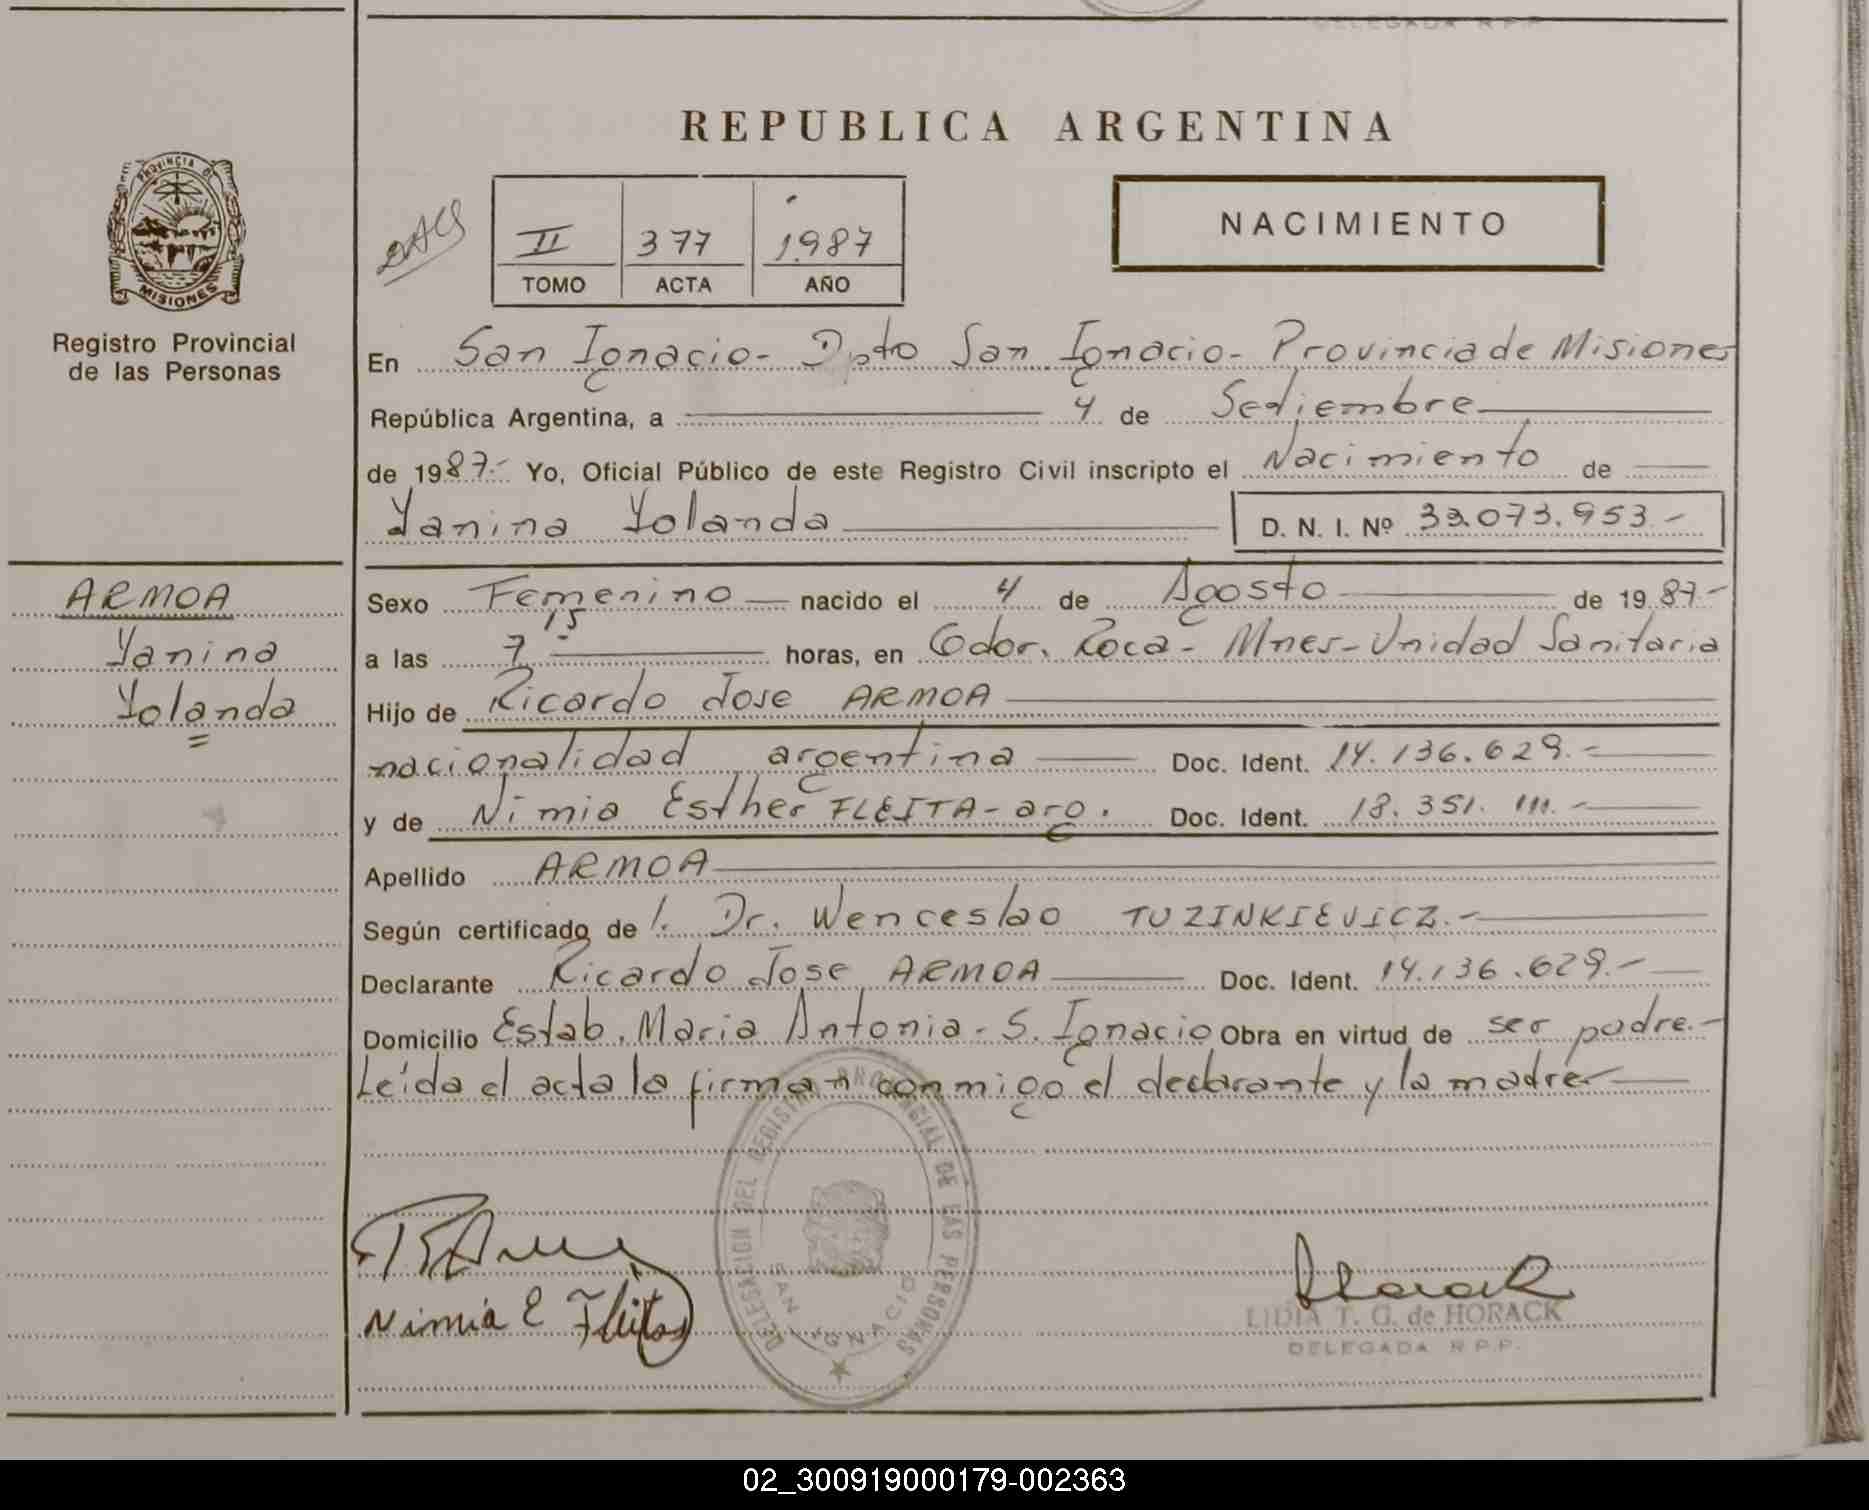 DELEGADA R.P.P.
REPUBLICA ARGENTINA
PROVINCIA DE
MISIONES
Registro Provincial
de las Personas
II 377 1987
TOMO ACTA AÑO
NACIMIENTO
En San Ignacio- Dpto San Ignacio- Provincia de Misiones
República Argentina, a 4 de Setiembre
de 1987.- Yo, Oficial Público de este Registro Civil inscripto el Nacimiento de
Yanina Yolanda D. N. I. Nº 33.073.953.-
ARMOA
Yanina
Yolanda
Sexo Femenino nacido el 4 de Agosto de 1987-
a las 7 15 horas, en Gdor. Roca- Mnes- Unidad Sanitaria
Hijo de Ricardo Jose ARMOA
nacionalidad argentina Doc. Ident. 14.136.629.-
y de Nimia Esther FLEITA- arg. Doc. Ident. 18.351.111.-
Apellido ARMOA
Según certificado de l. Dr. Wenceslao TUZINKIEVICZ.-
Declarante Ricardo Jose ARMOA Doc. Ident. 14.136.629.-
Domicilio Estab. Maria Antonia- S. Ignacio Obra en virtud de ser padre.-
Leída el acta la firman conmigo el declarante y la madre-
DELEGACION DEL REGISTRO PROVINCIAL DE LAS PERSONAS
SAN IGNACIO
Nimia E Fleitas
Horack
LIDIA T. G. de HORACK
DELEGADA R.P.P.
02_300919000179-002363